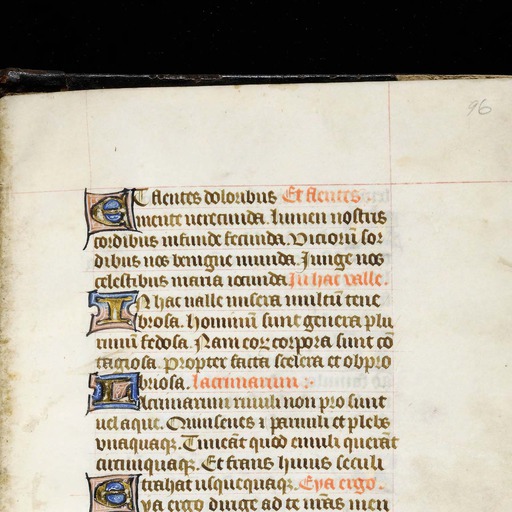 96
ET flentes doloribus Et flentes
mente uerecunda. lumen nostris
cordibus infunde fecunda. Viciorũ sor
dibus nos benigne munda. Junge nos
celestibus maria iocunda. In hac valle.
IN hac ualle misera multũ tene
brosa. hominũ sunt genera plu
rimũ fedosa. Nam eoꝝ corpora sunt cõ
tagiosa. propter facta scelera et obpro
briosa. lacrimarum :
Lacrimarum riuuli non pro sunt
uel aque. Quiuscues ⁊ paruuli et plebs
vnaquaqꝫ. Timeãt quod emuli querãt
circũquaqꝫ. Et fraus huius seculi
trahat usquequaqꝫ. Eya ergo.
Eya ergo dirige ad te nr̃as men